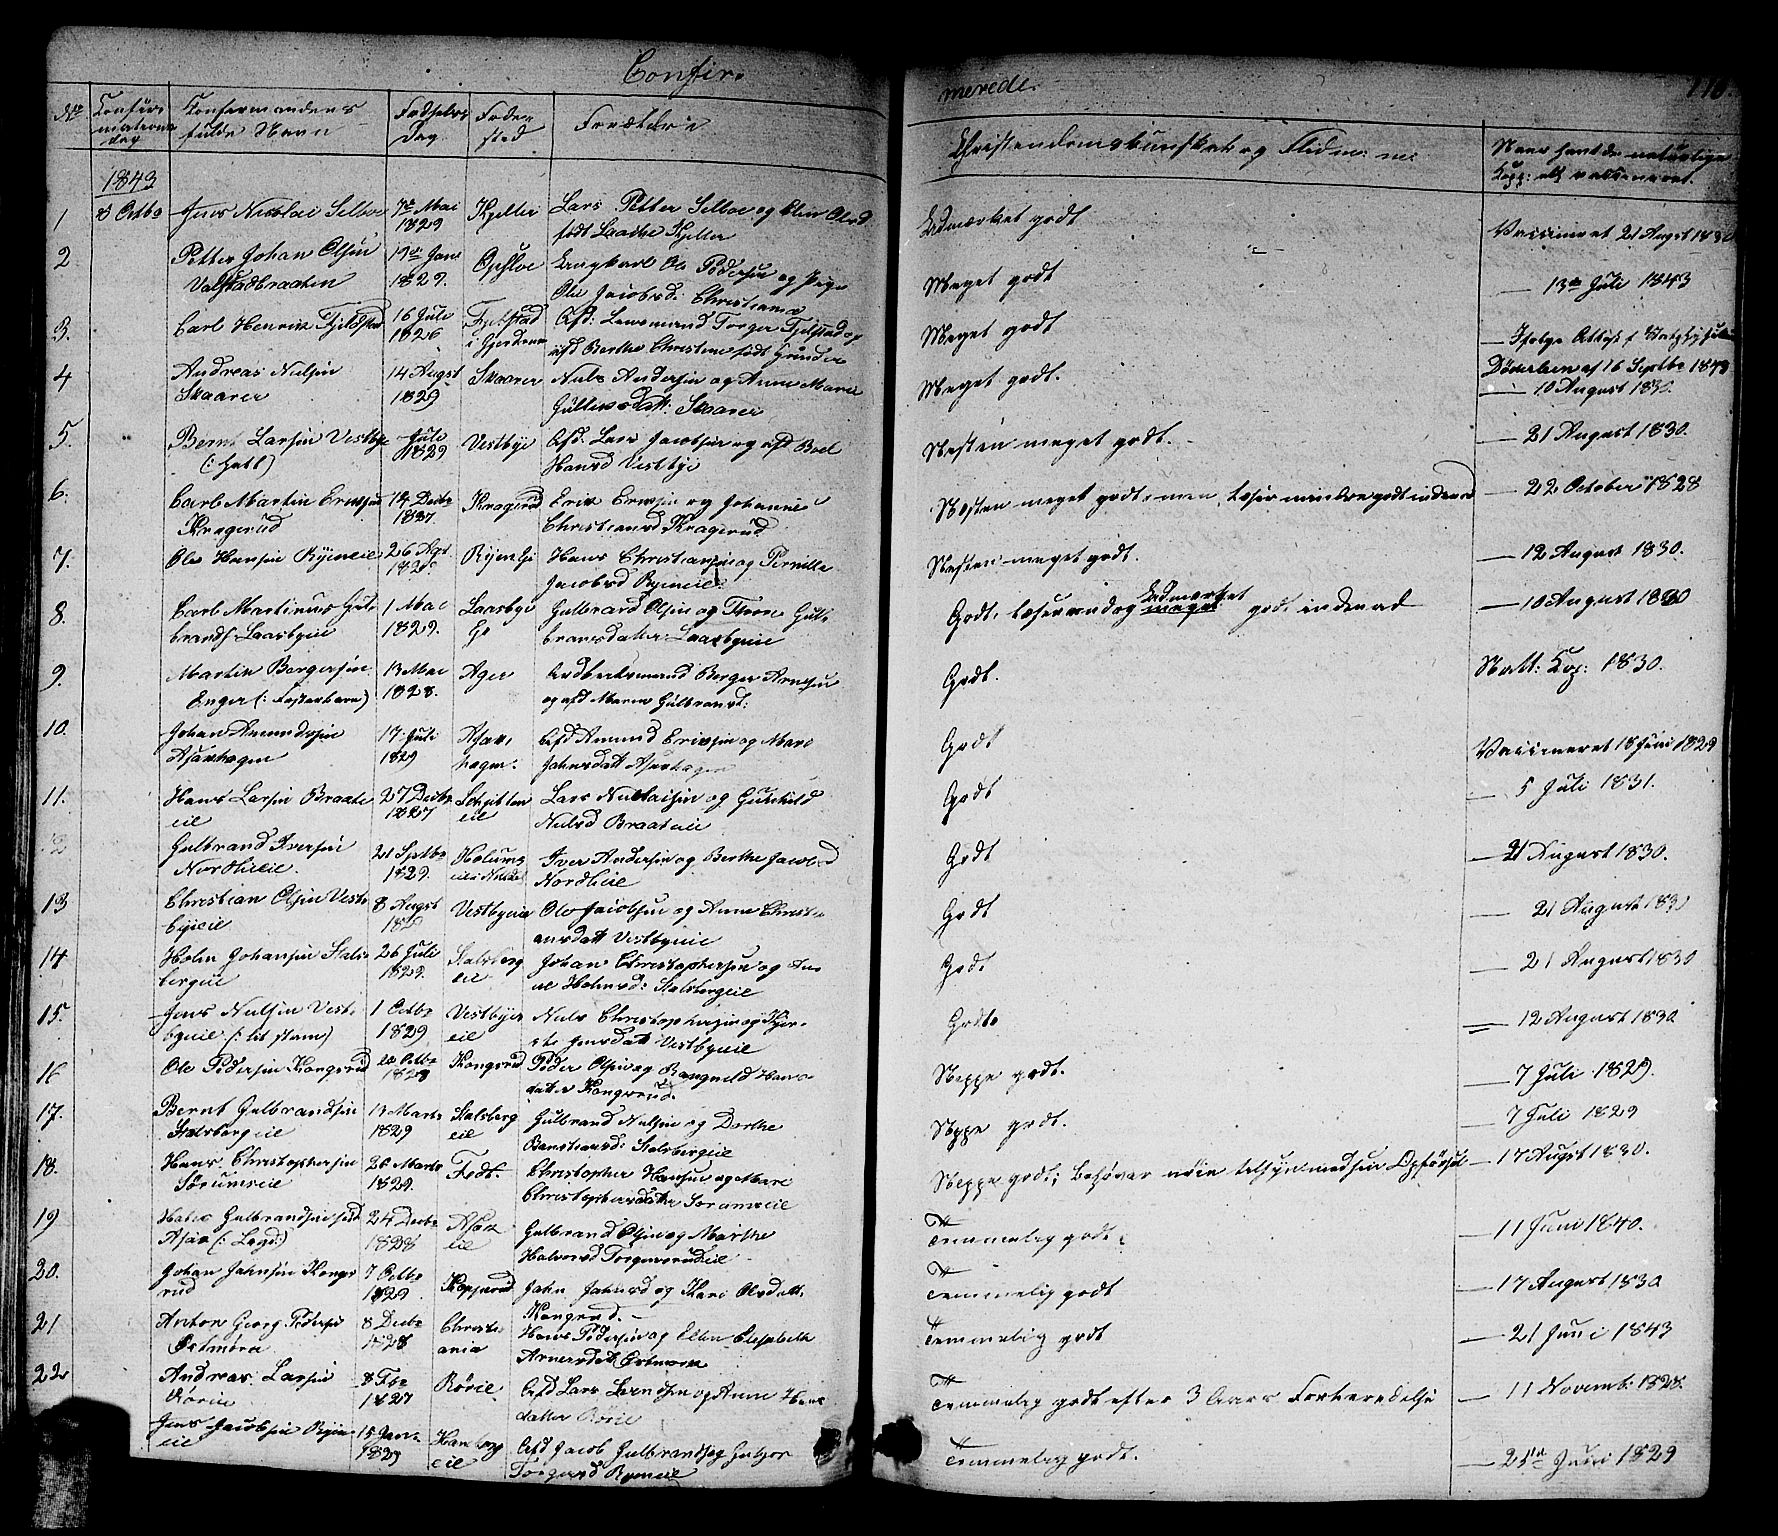 Confir-
merede.
No
Confir-
mations
dag
Confirmandens
fulde Navn
Fødsels
Dag
Føde-
sted
Forældre
Christendomskundskab og Flid
Naar havt de naturlige
Kopp: ell vaccineret.
1843
1
8 Octbr
Jens Nicolai Selboe
7de Mai
1829
Kjeller
Lars Petter Selboe og
født Laache Kjeller
Udmærket godt
Vaccineret 21 August 1830
2.
Petter Johan Olsen
Valstadbraaten
19de Janr
1829.
Opsloe
Ungkarl Ole Pedersen og Pige
Olia Jacobsd: Christiania
Meget godt
— 13de Juli 1843
3.
Carl Henrik Fjeldstad
16 Juli
1826
Fjelstad
i Gjerdrum
Afd: Lensmand Torger Fjelstad og
afd Berthe Christine født Grinder
Meget godt
— Ifølge Attest f
Døderlein af 16 Septbr 1843
4
Andreas Nielsen
Skaarer
14 Augst
1829
Skaarer
Niels Andersen og Anne Marie
Gulliksdatt: Skaarer
Meget godt.
— 10 August 1830.
5.
Bernt Larsen Vestbye
Juli
1829
Vestbye
Afd. Lars Jacobsen og afd Boel
Hansd Vestbye
Næsten meget godt.
— 21 August 1830.
6.
Carl Martin Ericksen
Kragerud
14 Decbr
1827.
Kragerud
Erik Ericksen og Johanne
Christiansd Kragerud
Næsten meget godt, men læser mindre godt indenad
— 22 October 1828
7.
Ole Hansen Ryeneie
26 Agt
Ryeneie
Hans Christiansen og Pernille
Jacobsd Ryeneie
Næsten meget godt.
— 12 August 1830.
8.
Carl Martinus Gul-
brands Laasbyeie
1 Mai
1829.
Laasbye
Eie
Gulbrand Olsen og Thore Gul-
bransdatter Laasbyeie
Godt, læser endog meget Udmærket godt indenad
— 10 August 1830
9.
Martin Bergersen
Enger (: Fosterbarn)
13 Mai
1828.
Ager
Arbeidsmand Berger Arnesen
og afd Maren Gulbrandsd:
Godt.
Natl: Kop: 1830.
10.
Johan Amundsen
Asakhagen
17 Juli
1829
Asak-
hagen.
Afd Amund Ericksen og Mari
Johnsdatt Asakhagen
Godt
Vaccineret 18 Juni 1829
11.
Hans Larsen Braate
eie
27 Decbr
1827
eie
Lars Nicolaisen og Gunhild
Nielsd Braateeie
Godt
— 5 Juli 1831.
12
Gulbrand Iversen
Nordlieie.
21 Septbr
1829.
Iver Andersen og Berthe Jacobsd
Nordlieie
Godt
— 21 August 1830.
13
Christian Olsen Vest-
byeie
8 Augst
Vestbyeie
Ole Jacobsen og Anne Christi-
ansdatt Vestbyeie
Godt
— 21 August 183
14
Holm Johansen Stals-
bergeie
26 Juli
1829.
Stalsberg
eie
Johan Christophersen og An-
ne Holmsd: Stalsbergeie
Godt
— 21 August 1830
15.
Jens Nielsen Vest-
byeie
1 Octbr
1829
Vestbye
eie
Niels Christophersen og Kjer-
ste Jensdatt Vestbyeie
Godt
— 12 August 1830
16
Ole Pedersen Kongsrud
Octbr
Kongsrud
Peder Olsen og Rangnild Hans-
datter Kongsrud.
Neppe godt.
— 7 Juli 1829.
17.
Bernt Gulbrandsen
Stalsbergeie
13 Marts
1829
Stalsberg
eie
Gulbrand Nielsen og Dorthe
Stalsbergeie
Neppe godt.
— 7 Juli 1829
18.
Hans Christophersen
Sørumseie
Marts
1829.
Fedt.
Christopher Hansen og Mari
Christophersdatter Sørumseie
Neppe godt; Behøver nøie tilsyn med sin Opførsel
— 17 Augst 1830.
19
Gulbrandsen
Asak (: Lægd:)
24 Decbr
1828
Asak
eie
Gulbrand Olsen og Marthe
Halvorsd Torgersrudeie
Temmelig godt
— 11 Juni 1840.
20.
Johan Jahnsen Kongs-
rud
7 Octbr
1829
Kopperud
Jahn Jahnsen og Kari Olsdatt.
Kongsrud.
Temmelig godt
— 17 August 1830
21
Anton Georg Pedersen
8 Decbr
1828
Christi-
ania
Hans Pedersen og Ellen Elisabeth
Temmelig godt
— 21 Juni 1843
22
Andreas Larsen
Rørie
1827
Rørie
Afd Lars og Anne Hans
datter Rørie
Temmelig godt efter 3 Aars Forberedelse
— 11 Novemb: 1828.
Jens Jacobsen Ryen
eie
15 Janr
1829
Hamborg
eie
Afd Jacob Gulbrands og
Torgersd Ryeneie
Temmelig godt.
— 25de Juni 1829